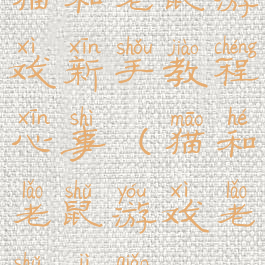 猫和老鼠游
xì xīn shǒu jiào chéng
戏新手教程
xīn shì māo hé
心事（猫和
lǎo shǔ yóu xì lǎo
老鼠游戏老
shǔ jì qiǎo